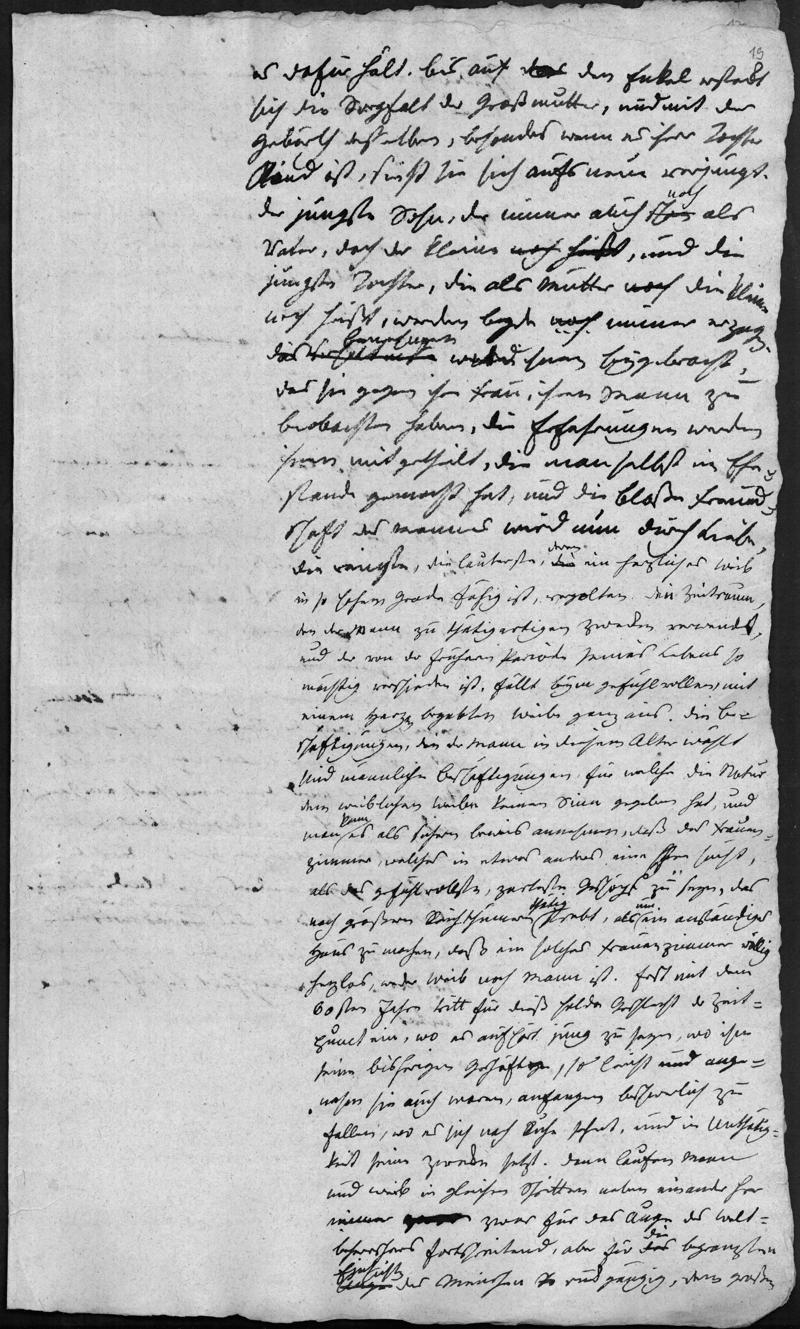 19
es dafür hält. bis auf den Enkel erstreckt
sich die Sorgfalt der Großmutter, und mit der
Geburth desselben, besonders wenn es ihrer Tochter
Kind ist, sieht sie sich aufs neue verjüngt.
der jüngste Sohn, der immer auch noch als
Vater, doch der kleine noch heißt, und die
jüngste Tochter, die als Mutter noch die kleine
noch heißt, werden beyde noch immer erzogen.
das Benehmen wird ihnen beygebracht,
das sie gegen ihre Frau, ihren Mann zu
beobachten haben, die Erfahrungen werden
ihnen mitgetheilt, die man selbst im Ehe-
stande gemacht hat, und die bloße Freund-
schaft des Mannes wird nun durch Liebe,
die reinste, die lauterste, deren ein herzliches Weib
in so hohem Grade fähig ist, vergolten. Den Zeitraum,
den der Mann zu thätigartigen Zwecken verwendet,
und der von der frühern Periode seines Lebens so
mächtig verschieden ist, fällt beym gefühlvollen, mit
einem Herzen begabten Weibe ganz aus. die Be-
schäftigungen, die der Mann in diesem Alter wählt
sind männliche Beschäftigungen, für welche die Natur
dem weiblichen Weibe keinen Sinn gegeben hat, und
man kann es als sichern Beweis annehmen, daß das Frauen-
zimmer, welches in etwas anders eine Ehre sucht,
als das gefühlvollste, zarteste Geschöpf zu seyn, das
nach größern Reichthümern thätig strebt, als um ein anständiges
Haus zu machen, daß ein solches Frauenzimmer völlig
herzlos, weder Weib noch Mann ist. Erst mit dem
60sten Jahre tritt für dieß holde Geschlecht der Zeit-
punct ein, wo es aufhört jung zu seyn, wo ihm
seine bisherigen Geschäfte, so leicht und ange-
nehm sie auch waren, anfangen beschwerlich zu
fallen, wo es sich nach Ruhe sehnt, und in Unthätig-
keit seine Zwecke setzt. dann laufen Mann
und Weib in gleichen Schritten neben einander her
immer zwar für das Auge des Welt-
beherrschers fortschreitend, aber für die begränzten
Einsicht des Menschen rückgängig, dem großen